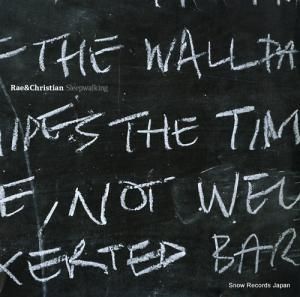 F THE WALLPA
Rae&Christian Sleepwalking
IDES THE TIM
E, NOT WEL
XERTED BAR
Snow Records Japan